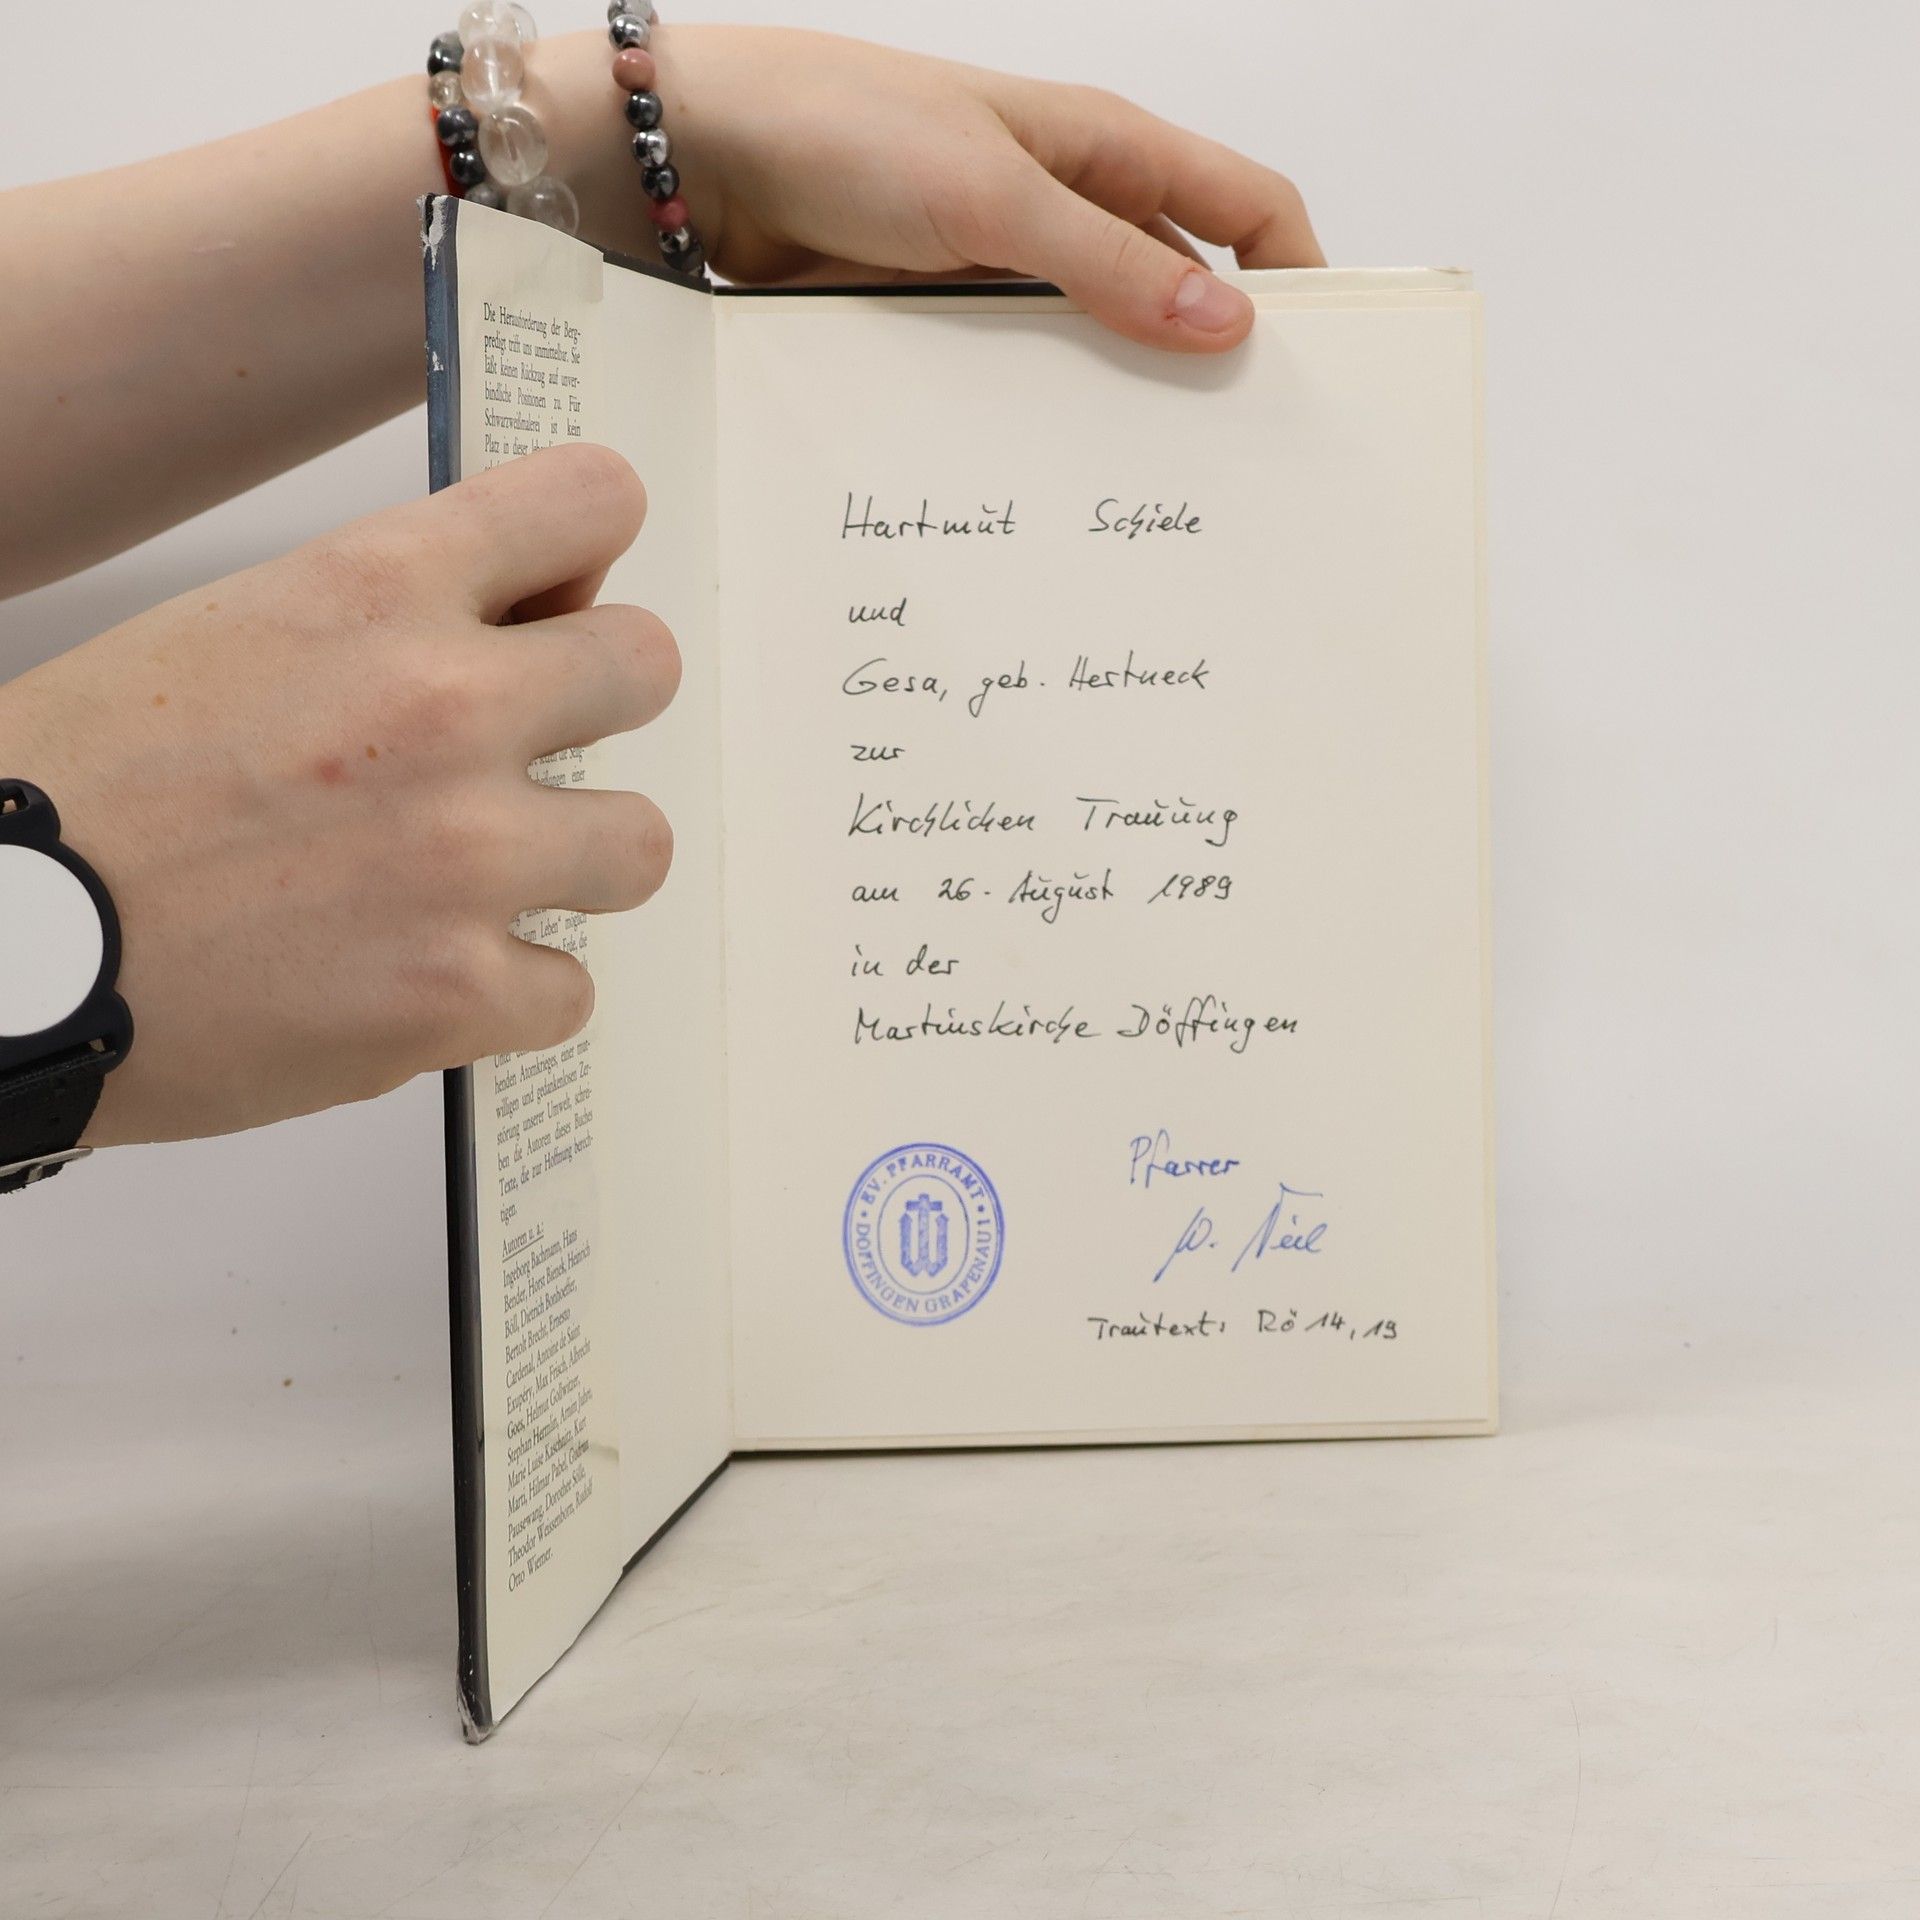 Die Herausforderung der Berg-
predigt trifft uns unmittelbar. Sie
läßt keinen Rückzug auf unver-
bindliche Positionen zu. Für
Schwarzweißmalerei ist kein
Platz in dieser
einer
zum Leben" möglich
Erde, die
Unter
henden Atomkrieges, einer mut-
willigen und gedankenlosen Zer-
störung unserer Umwelt, schrei-
ben die Autoren dieses Buches
Texte, die zur Hoffnung berech-
tigen.
Autoren u. a.:
Ingeborg Bachmann, Hans
Bender, Horst Bienek, Heinrich
Böll, Dietrich Bonhoeffer,
Bertolt Brecht, Ernesto
Cardenal, Antoine de Saint
Exupéry, Max Frisch, Albrecht
Goes, Helmut Gollwitzer,
Stephan Hermlin, Arnim Juhre,
Marie Luise Kaschnitz, Kurt
Marti, Hilmar Pabel, Gudrun
Pausewang, Dorothee Sölle,
Theodor Weissenborn, Rudolf
Otto Wiemer.
Hartmut Schiele
und
Gesa, geb. Hestneck
zur
Kirchlichen Trauung
am 26. August 1989
in der
Martinskirche Döffingen
EV. PFARRAMT I
DÖFFINGEN GRAFENAU
Pfarrer
W.
Trautext: Rö 14, 19